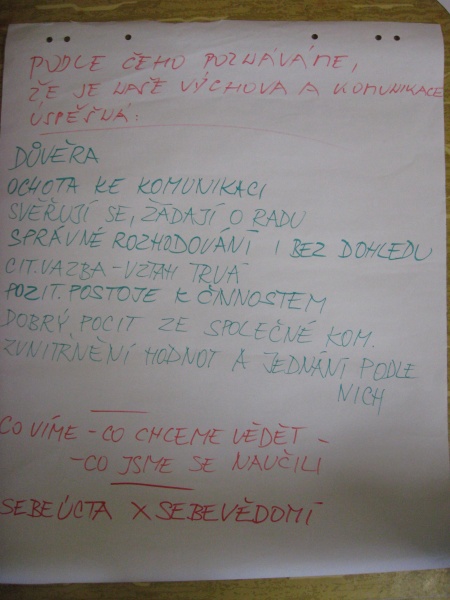 PODLE ČEHO POZNÁVÁME,
ŽE JE NAŠE VÝCHOVA A KOMUNIKACE
ÚSPĚŠNÁ:
DŮVĚRA
OCHOTA KE KOMUNIKACI
SVĚŘUJÍ SE, ŽÁDAJÍ O RADU
SPRÁVNÉ ROZHODOVÁNÍ I BEZ DOHLEDU
CIT. VAZBA - VZTAH TRVÁ
POZIT. POSTOJE K ČINNOSTEM
DOBRÝ POCIT ZE SPOLEČNÉ KOM.
ZVNITŘNĚNÍ HODNOT A JEDNÁNÍ PODLE
NICH
CO VÍME - CO CHCEME VĚDĚT -
- CO JSME SE NAUČILI
SEBEÚCTA X SEBEVĚDOMÍ